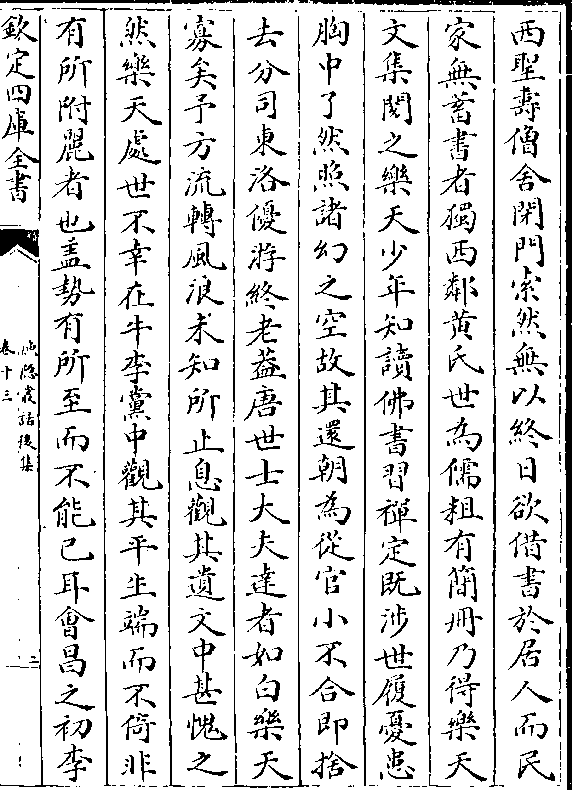 西聖壽僧舍閉門索然無以終日欲借書於居人而民
家無蓄書者獨西鄰黄氏世為儒粗有簡冊乃得樂天
文集閱之樂天少年知讀佛書習禪定既涉世履憂患
胸中了然照諸幻之空故其還朝為從官小不合即捨
去分司東洛優游終老葢唐世士大夫達者如白樂天
寡矣予方流轉風浪未知所止息觀其遺文中甚愧之
然樂天處世不幸在牛李黨中觀其平生端而不倚非
有所附麗者也盖勢有所至而不能已耳會昌之初李
欽定四庫全書
漁隱叢話後集
卷十三
三